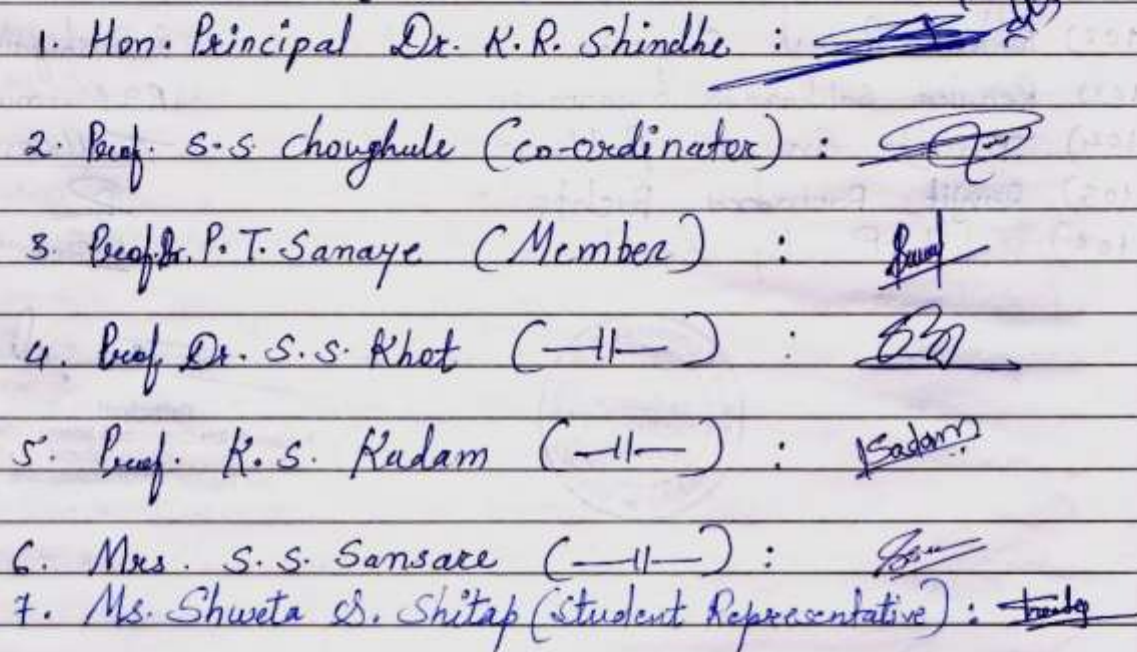 1. Hon. Principal Dr. K. R. Shindhe :
2. Prof. S.S Choughule (Co-ordinator) :
3. Prof. Dr. P. T. Sanaye (Member) :
4. Prof. Dr. S. S. Khot (—〃—) :
5. Prof. K. S. Kadam (—〃—) : Kadam
6. Mrs. S. S. Sansare (—〃—) :
7. Ms. Shweta S. Shitap (Student Representative) :